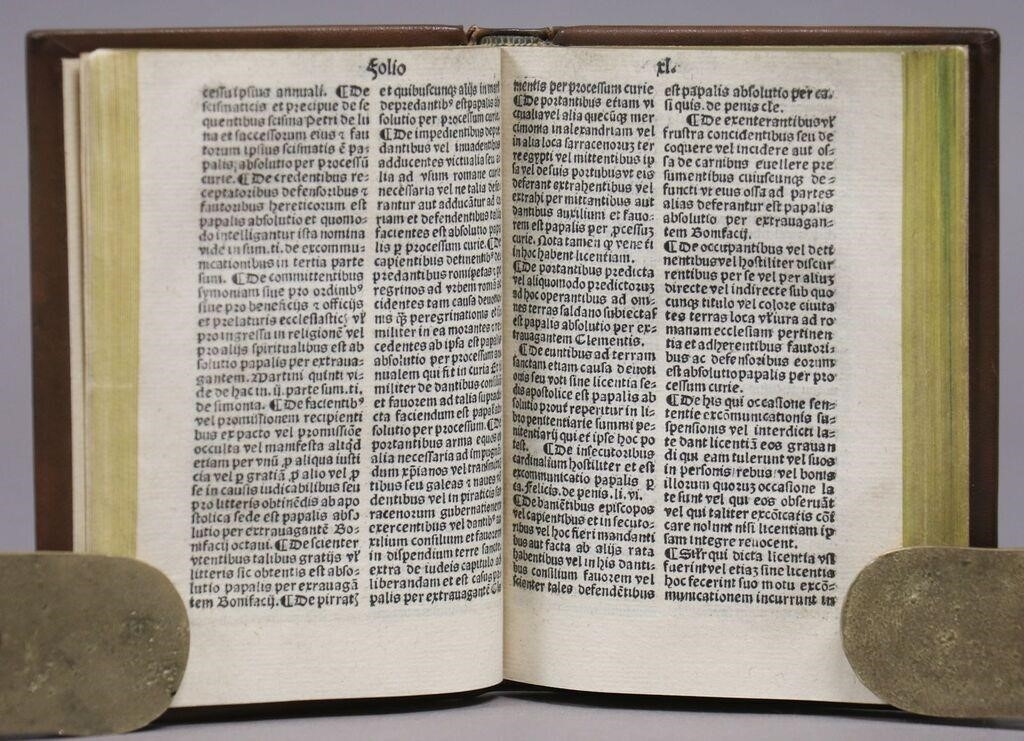 Folio
cessu ipsius annuali. ⁋De
scismaticis et precipue de se
quentibus scisma Petri de lu
na et successorum eius ⁊ fau
torum ipsius scismatis ē pa-
palis absolutio per processū
curie. ⁋De credentibus re-
ceptatoribus defensoribus ⁊
fautoribus hereticorum est
papalis absolutio et quomo-
do intelligantur ista nomina
vide in sum. ti. de excommu-
nicationibus in tertia parte
sum. ⁋De committentibus
symoniam siue pro ordinibꝰ
siue pro beneficijs ⁊ officijs
et prelaturis ecclesiasticis vl̄
pro ingressu in religionē vel
pro alijs spiritualibus est ab
solutio papalis per extraua-
gantem. Martini quinti vi-
de de hac in. ij. parte sum. ti.
de simonia. ⁋De facientibꝰ
vel promissionem recipienti
bus ex pacto vel promissiōe
occulta vel manifesta aliqd
etiam per vnū ꝓ aliqua iusti
cia vel ꝓ gratiā ꝓ alio vel ꝓ
se in causis iudicabilibus seu
pro litteris obtinēdis ab apo
stolica sede est papalis abso
lutio per extrauagantē Bo-
nifacij octaui. ⁋De scienter
vtentibus talibus gratijs vl̄
litteris sic obtentis est abso-
lutio papalis per exrauagā
tem Bonifacij. ⁋De pirratꝫ
et quibuscunqꝫ alijs in mari
depredantibꝰ est papalis ab
solutio per processum curie.
⁋De impedientibus depre
dantibus vel inuadentibus
adducentes victualia seu a
lia ad vsum romane curie
necessaria vel ne talia defe
rantur aut adducātur ad cu
riam et defendentibus talia
facientes est absolutio papa
lis ꝑ processum curie. ⁋De
capientibus detinentibꝰ de
predantibus romipetas ⁊ pe
regrinos ad vrbem romā ac
cidentes tam causa deuotio
nis qꝫ peregrinationis et si
militer in ea morantes ⁊ re
cedentes ab ipsa est papalis
absolutio per processum an
nualem qui fit in curia Et si
militer de dantibus consiliū
et fauorem ad talia supradi
cta faciendum est papalis ab
solutio per processum. ⁋De
portantibus arma equos et
alia necessaria ad impugnā
dum xp̄ianos vel transmittē
tibus seu galeas ⁊ naues vē
dentibus vel in piraticis sar
racenorum gubernationem
exercentibus vel dantibꝰ au
xilium consilium et fauorem
in dispendium terre sancte
extra de iudeis capitulo ad
liberandam et est casus pa
palis per extrauagantē Cle
xl.
mentis per processum curie
⁋De portantibus etiam vi
ctualia vel alia quecūqꝫ mer
cimonia in alexandriam vel
in alia loca sarracenorum ter
re egypti vel mittentibus ip
sa vel de suis portubus vt eis
deferant extrahentibus vel
extrahi permittentibus aut
dantibus auxilium et fauo-
rem est papalis per ꝓcessuʒ
curie. Nota tamen ꝙ veneti
in hoc habent licentiam.
⁋De portantibus predicta
vel aliquomodo predictoruʒ
ad hoc operantibus ad om-
nes terras saldano subiectas
est papalis absolutio per ex-
trauagantem Clementis.
⁋De euntibus ad terram
sanctam etiam causa deuoti
onis seu voti sine licentia se-
dis apostolice est papalis ab
solutio prout reperitur in li-
bro penitentiarie summi pe-
nitentiarij qui et ipse hoc po
test. ⁋De insecutoribus
cardinalium hostiliter et est
excommunicatio papalis ꝑ
ca. felicis. de penis. li. vi.
⁋De baniētibus episcopos
vel capientibus et insecuto-
ribus vel hoc fieri mandanti
bus aut facta ab alijs rata
habentibus vel in his danti-
bus consilium fauorem vel
scienter tales defendētibus
est papalis absolutio per ca.
si quis. de penis cle.
⁋De exenterantibus vl̄
frustra concidentibus seu de
coquere vel incidere aut os-
sa de carnibus euellere pre
sumentibus cuiuscunqꝫ de-
functi vt eius ossa ad partes
alias deferantur est papalis
absolutio per extrauagan-
tem Bonifacij.
⁋De occupantibus vel deti
nentibus vel hostiliter discur
rentibus per se vel per aliuʒ
directe vel indirecte sub quo
cunqꝫ titulo vel colore ciuita
tes terras loca vl̄ iura ad ro
manam ecclesiam pertinen
tia et adherentibus fautori-
bus ac defensoribus eorum
est absolutio papalis per pro
cessum curie.
⁋De his qui occasione sen-
tentie excōmunicationis su-
spensionis vel interdicti la-
te dant licentiā eos grauan
di qui eam tulerunt vel suos
in personis rebus vel bonis
illorum quoruʒ occasione la
te sunt vel qui eos obseruāt
vel qui taliter excōicatis cōi
care nolunt nisi licentiam ip
sam integre reuocent.
⁋Si v̄o qui dicta licentia vsi
fuerint vel etiaʒ sine licentia
hoc fecerint suo motu excō-
municationem incurrunt in